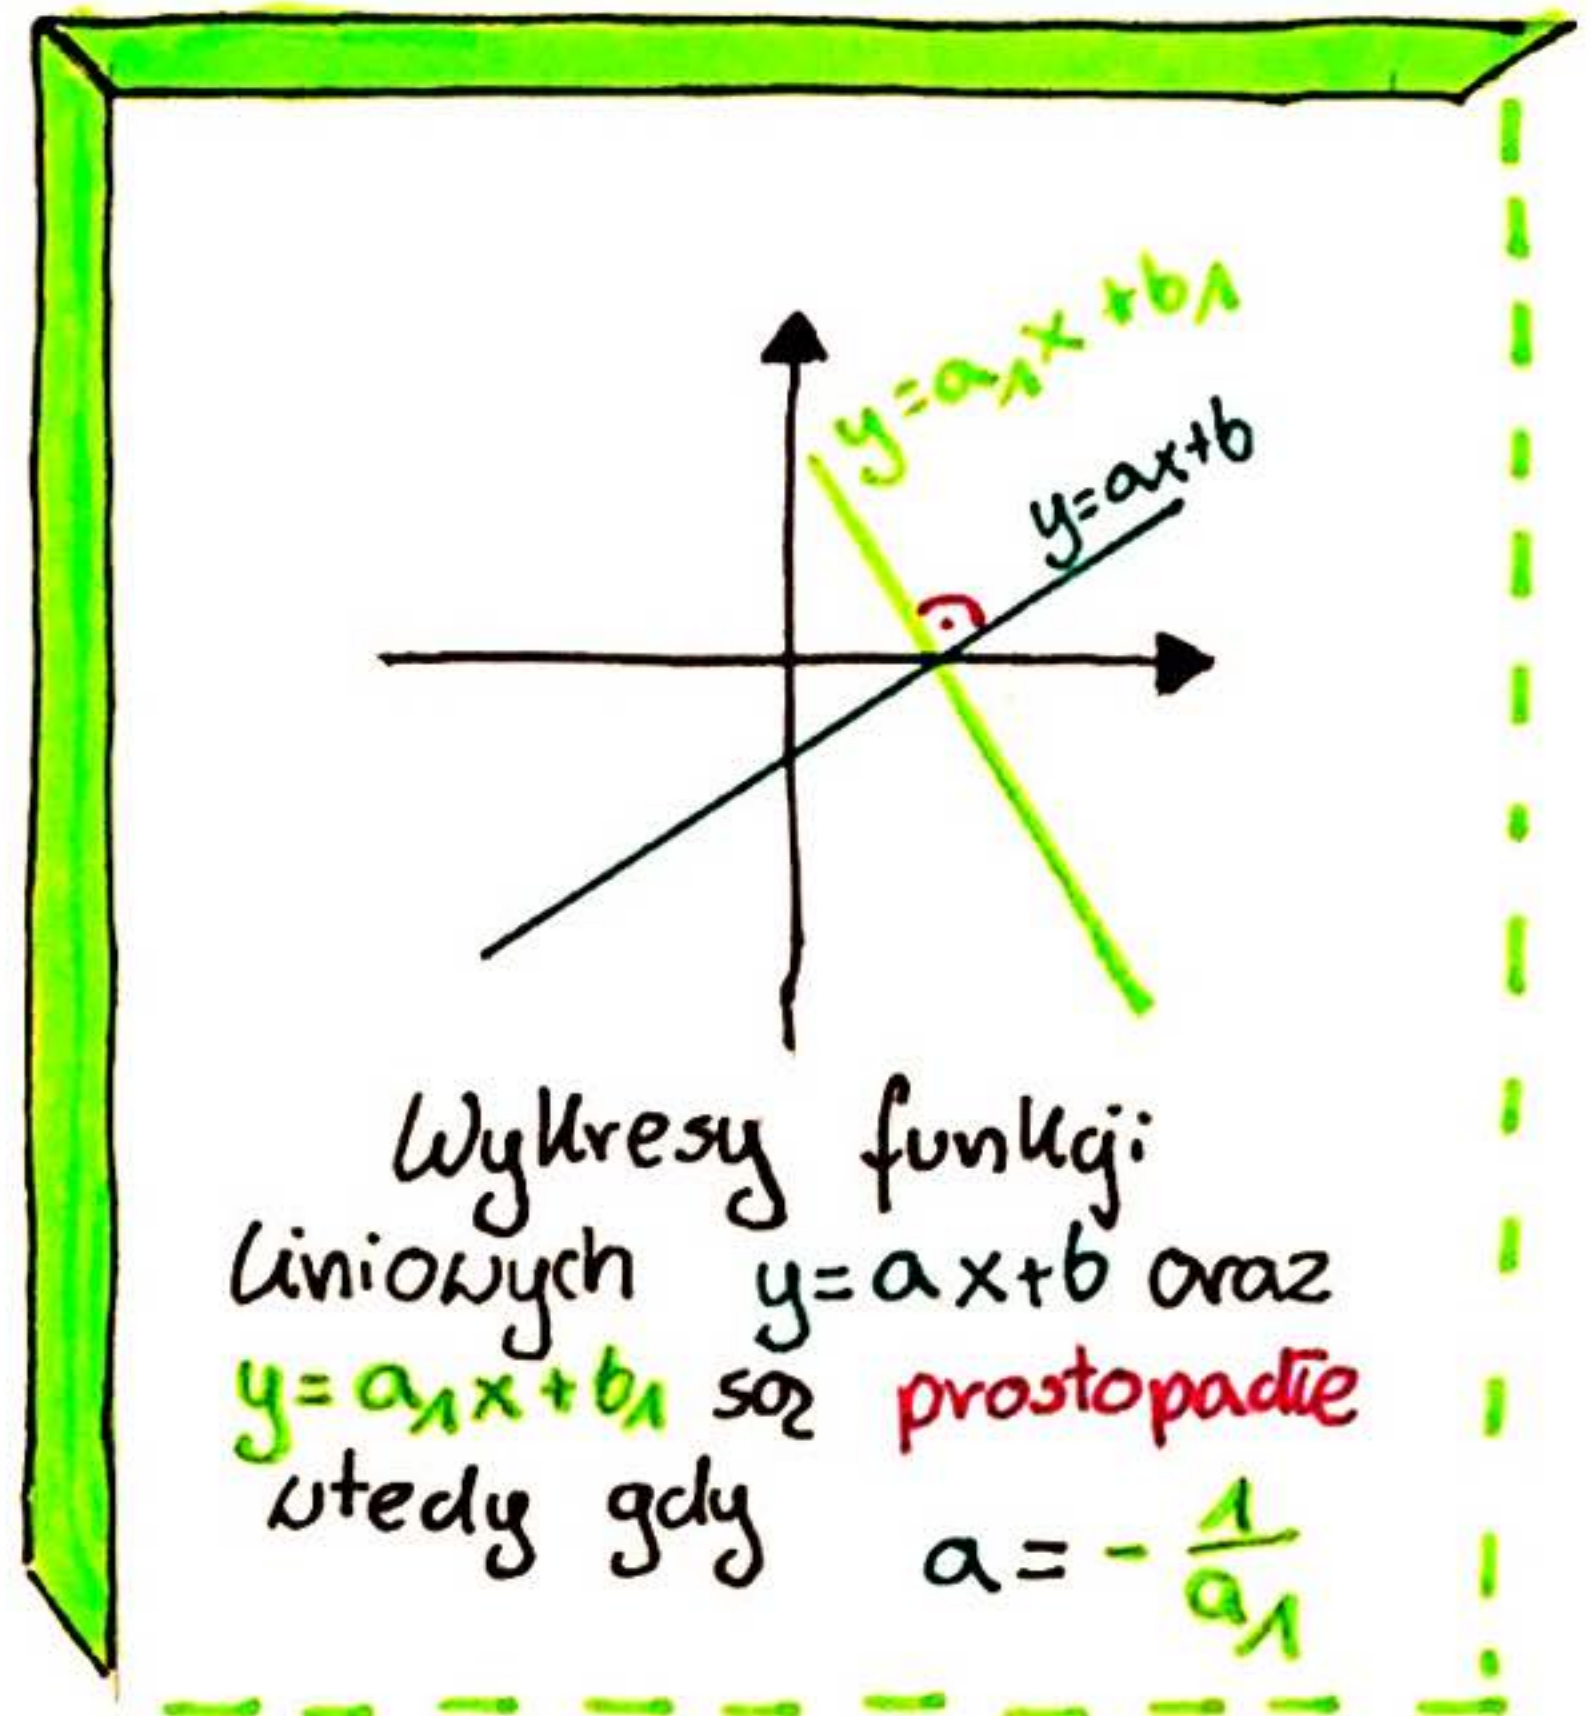 y=a₁x+b₁
y=ax+b
Wykresy funkcji
liniowych y=ax+b oraz
y=a₁x+b₁ są prostopadłe
wtedy gdy a=-1/a₁